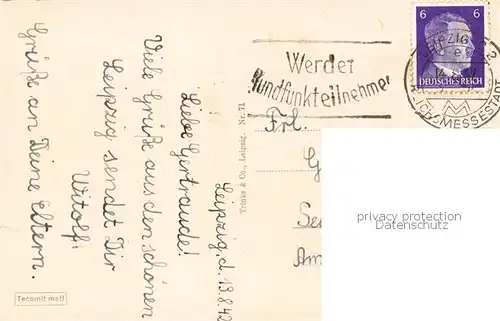 Leipzig, d. 13.8.42
Liebe Gertraude!
Viele Grüße aus den schönen
Leipzig sendet Dir
Witolf!
Grüße an Deine Eltern.
Tecomit matt
Trinks & Co., Leipzig. Nr. 71
Werdet
Rundfunkteilnehmer
6 6
DEUTSCHES REICH
LEIPZIG
REICHSMESSESTADT
Frl.
Am
privacy protection
Datenschutz